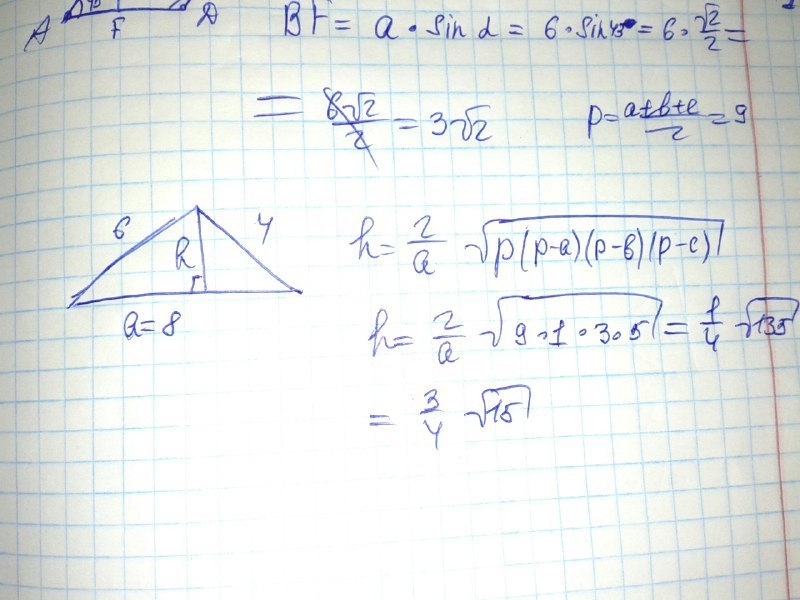 A F D BF = a · sin α = 6 · sin 45° = 6 · √2/2 =
= 6√2/2 = 3√2 p = a+b+c/2 = 9
6 4 h h = 2/a √p(p-a)(p-b)(p-c)
a=8 h = 2/a √9·1·3·5 = 1/4 √135
= 3/4 √15